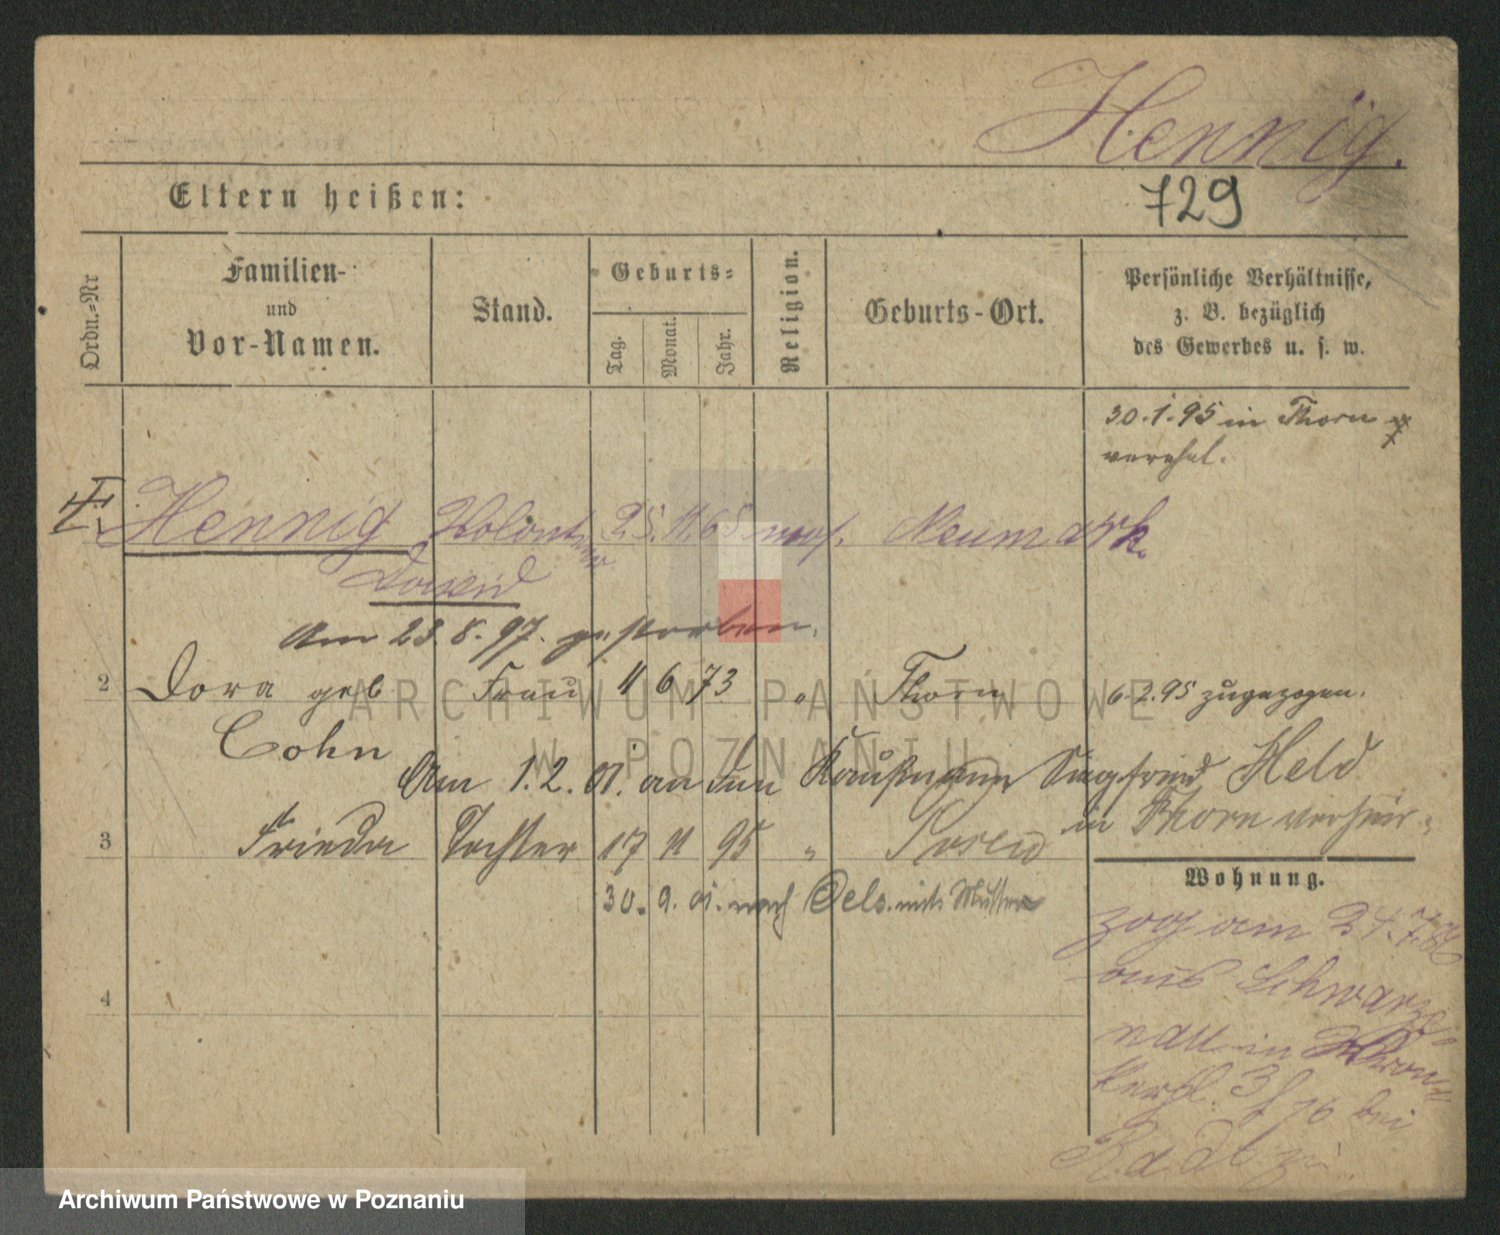 Hennig.
729
Eltern heißen:
Ordn.-Nr
Familien-
und
Vor-Namen.
Stand.
Geburts-
Tag.
Monat.
Jahr.
Religion.
Geburts-Ort.
Persönliche Verhältnisse,
z. B. bezüglich
des Gewerbes u. s. w.
30.1.95 in Thorn
verehel.
Hennig 25. 11. 65 mos. Neumark.
David
Am 23.8.97. gestorben.
2 Dora geb Frau 11 6 73 " Thorn 6.2.95 zugezogen.
Cohn
Am 1.2.01. an den Kaufmann Siegfried Held
in Thorn verheir-
3 Frieda Tochter 17 11 95 " Posen
Wohnung.
30. 9. 01. nach Oels mit Mutter
zog am 24.7.86
aus Schwarze-
nau in
4
3 bei
ARCHIWUM PAŃSTWOWE
W POZNANIU
Archiwum Państwowe w Poznaniu